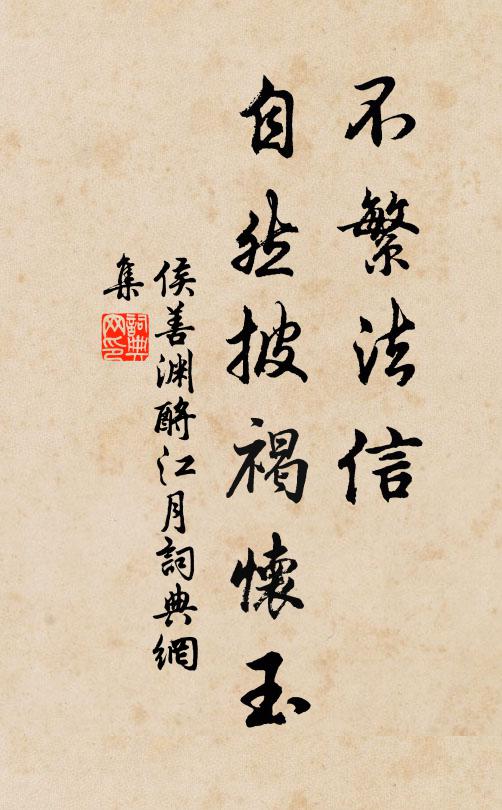 不繁法信
自然披褐懷玉
侯善渊酹江月詞典網
集
詞典網印